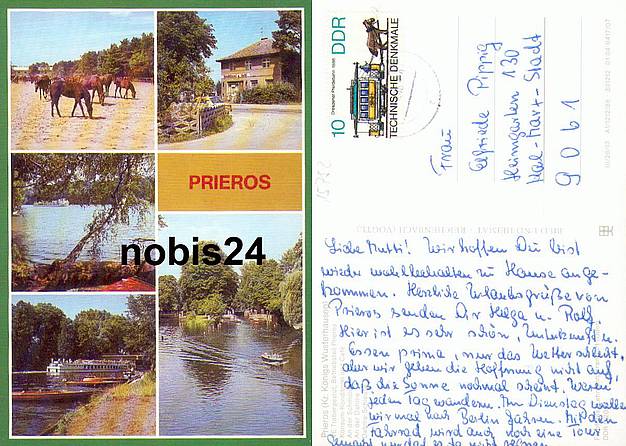 PRIEROS
nobis24
DDR
10
Dresdener Pferdebahn 1886
TECHNISCHE DENKMALE
Frau
Elfriede Pippig
Heimgarten 130
Karl-Marx-Stadt
9061
BILD UND HEIMAT REICHENBACH (VOGTL)
Liebe Mutti! Wir hoffen Du bist
wieder wohlbehalten zu Hause ange-
kommen. Herzliche Urlaubsgrüße von
Prieros senden Dir Helga u. Rolf
Hier ist es sehr schön, Unterkunft u.
Essen prima, nur das Wetter schlecht,
aber wir geben die Hoffnung nicht auf,
daß die Sonne nochmal scheint. Waren
jeden Tag wandern. Am Dienstag wollen
wir mal nach Berlin fahren. Mit dem
Fahrrad wird auch noch eine Tour
gemacht